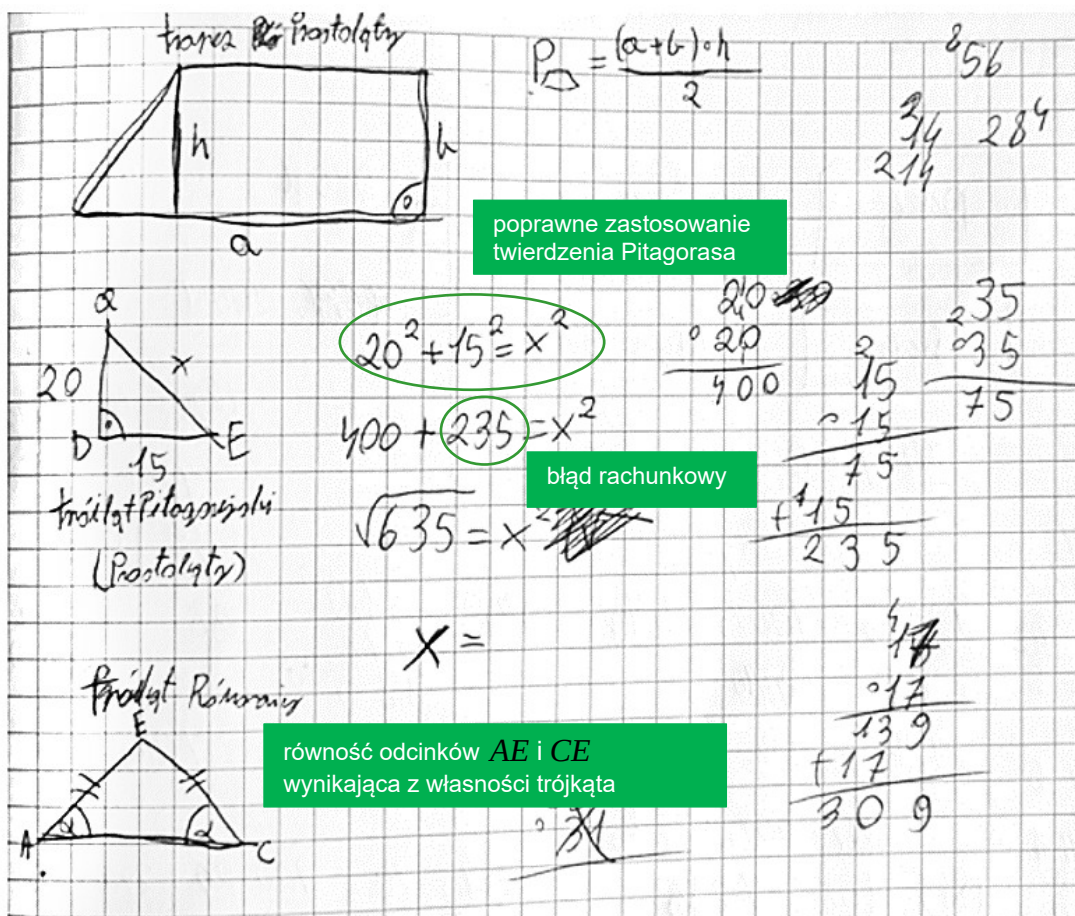 trapez Prostokątny
P = (a+b)∘h
2
h
b
a
⁸56
²14 28⁴
214
poprawne zastosowanie
twierdzenia Pitagorasa
Q
20
x
D
15
E
20² + 15² = x²
400 + 235 = x²
błąd rachunkowy
√635 = x
x =
(Prostokątny)
20
∘20
400
²15
∘15
75
+15
235
35
∘35
75
17
∘17
139
+17
309
trójkąt Równoramienny
E
A
α
α
C
równość odcinków AE i CE
wynikająca z własności trójkąta